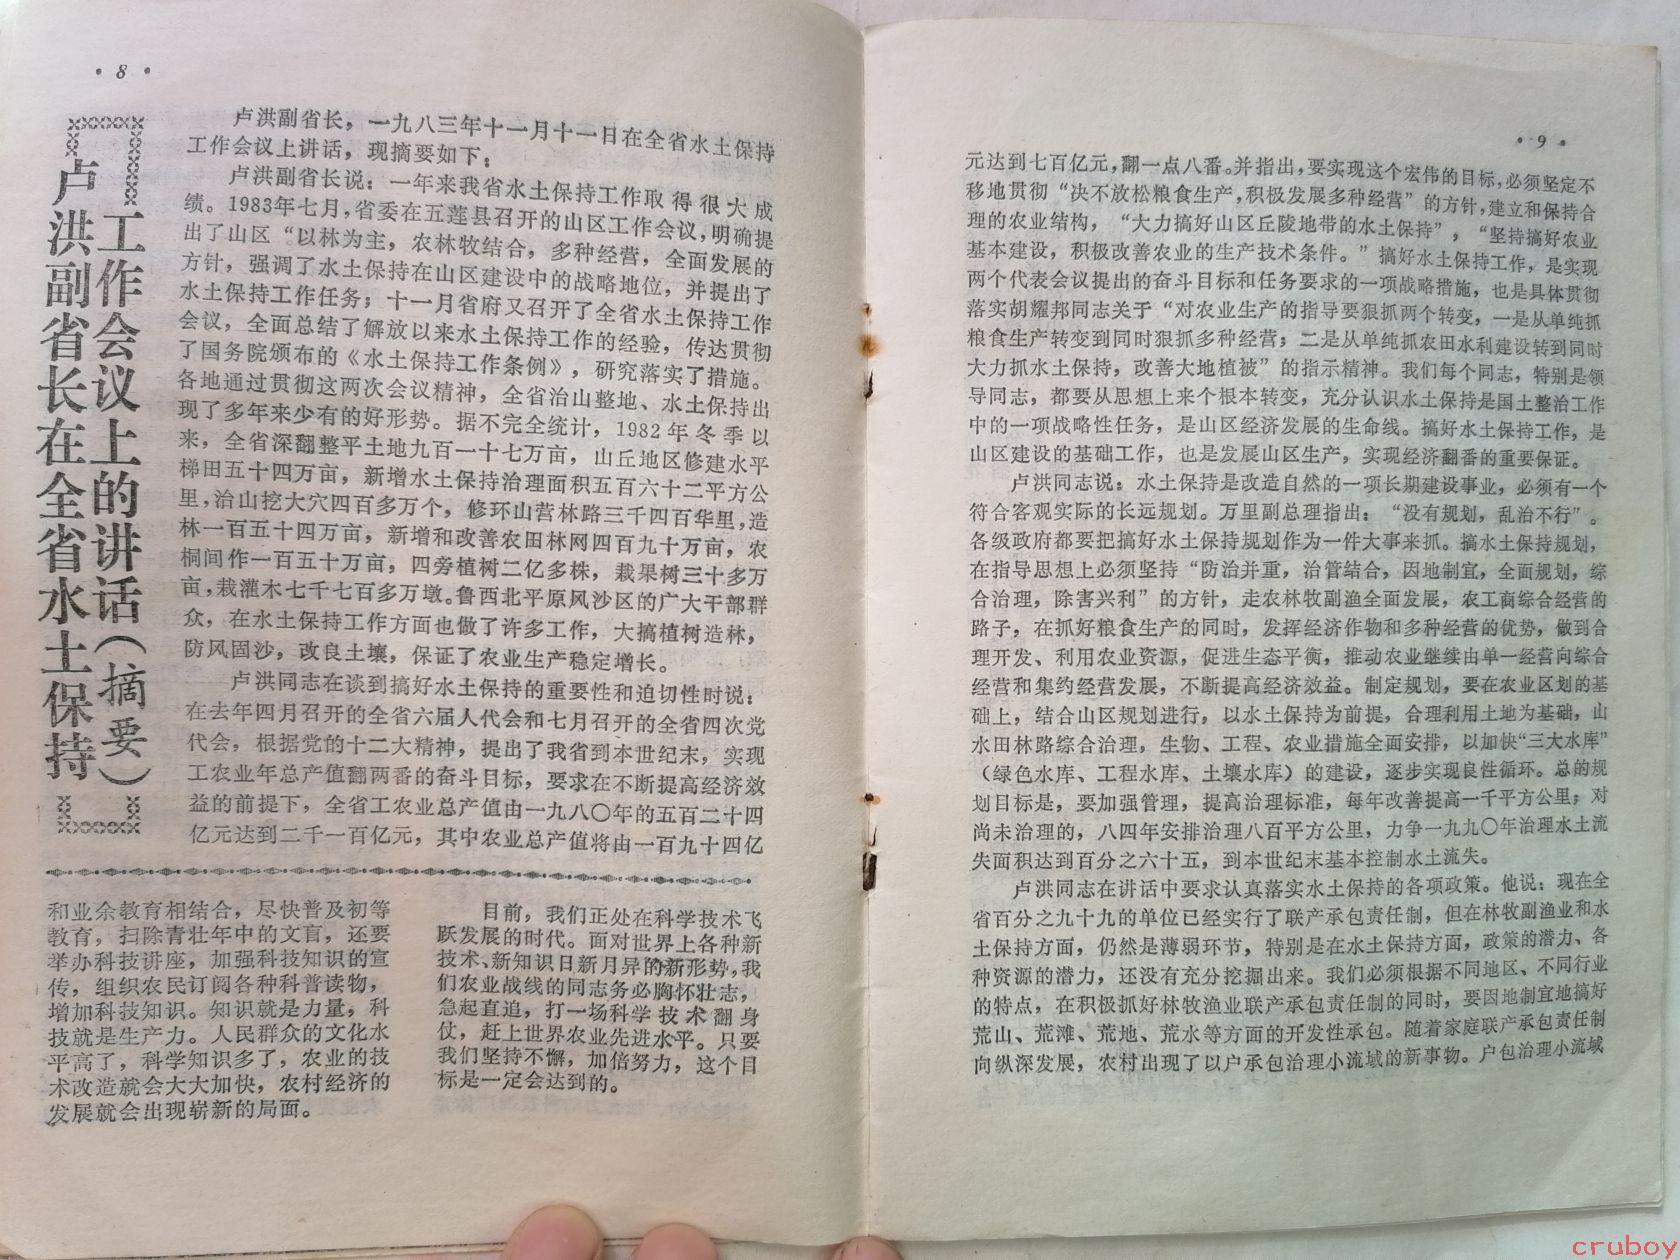 · 8 ·
卢洪副省长在全省水土保持
工作会议上的讲话（摘要）
卢洪副省长，一九八三年十一月十一日在全省水土保持
工作会议上讲话，现摘要如下：
卢洪副省长说：一年来我省水土保持工作取得很大成
绩。1983年七月，省委在五莲县召开的山区工作会议，明确提
出了山区“以林为主，农林牧结合，多种经营，全面发展的
方针，强调了水土保持在山区建设中的战略地位，并提出了
水土保持工作任务；十一月省府又召开了全省水土保持工作
会议，全面总结了解放以来水土保持工作的经验，传达贯彻
了国务院颁布的《水土保持工作条例》，研究落实了措施。
各地通过贯彻这两次会议精神，全省治山整地、水土保持出
现了多年来少有的好形势。据不完全统计，1982年冬季以
来，全省深翻整平土地九百一十七万亩，山丘地区修建水平
梯田五十四万亩，新增水土保持治理面积五百六十二平方公
里，治山挖大穴四百多万个，修环山营林路三千四百华里，造
林一百五十四万亩，新增和改善农田林网四百九十万亩，农
桐间作一百五十万亩，四旁植树二亿多株，栽果树三十多万
亩，栽灌木七千七百多万墩。鲁西北平原风沙区的广大干部群
众，在水土保持工作方面也做了许多工作，大搞植树造林，
防风固沙，改良土壤，保证了农业生产稳定增长。
卢洪同志在谈到搞好水土保持的重要性和迫切性时说：
在去年四月召开的全省六届人代会和七月召开的全省四次党
代会，根据党的十二大精神，提出了我省到本世纪末，实现
工农业年总产值翻两番的奋斗目标，要求在不断提高经济效
益的前提下，全省工农业总产值由一九八〇年的五百二十四
亿元达到二千一百亿元，其中农业总产值将由一百九十四亿
和业余教育相结合，尽快普及初等
教育，扫除青壮年中的文盲，还要
举办科技讲座，加强科技知识的宣
传，组织农民订阅各种科普读物，
增加科技知识。知识就是力量，科
技就是生产力。人民群众的文化水
平高了，科学知识多了，农业的技
术改造就会大大加快，农村经济的
发展就会出现崭新的局面。
目前，我们正处在科学技术飞
跃发展的时代。面对世界上各种新
技术、新知识日新月异的新形势，我
们农业战线的同志务必胸怀壮志，
急起直追，打一场科学技术翻身
仗，赶上世界农业先进水平。只要
我们坚持不懈，加倍努力，这个目
标是一定会达到的。
· 9 ·
元达到七百亿元，翻一点八番。并指出，要实现这个宏伟的目标，必须坚定不
移地贯彻“决不放松粮食生产，积极发展多种经营”的方针，建立和保持合
理的农业结构，“大力搞好山区丘陵地带的水土保持”，“坚持搞好农业
基本建设，积极改善农业的生产技术条件。”搞好水土保持工作，是实现
两个代表会议提出的奋斗目标和任务要求的一项战略措施，也是具体贯彻
落实胡耀邦同志关于“对农业生产的指导要狠抓两个转变，一是从单纯抓
粮食生产转变到同时狠抓多种经营；二是从单纯抓农田水利建设转到同时
大力抓水土保持，改善大地植被”的指示精神。我们每个同志，特别是领
导同志，都要从思想上来个根本转变，充分认识水土保持是国土整治工作
中的一项战略性任务，是山区经济发展的生命线。搞好水土保持工作，是
山区建设的基础工作，也是发展山区生产，实现经济翻番的重要保证。
卢洪同志说：水土保持是改造自然的一项长期建设事业，必须有一个
符合客观实际的长远规划。万里副总理指出：“没有规划，乱治不行”。
各级政府都要把搞好水土保持规划作为一件大事来抓。搞水土保持规划，
在指导思想上必须坚持“防治并重，治管结合，因地制宜，全面规划，综
合治理，除害兴利”的方针，走农林牧副渔全面发展，农工商综合经营的
路子，在抓好粮食生产的同时，发挥经济作物和多种经营的优势，做到合
理开发、利用农业资源，促进生态平衡，推动农业继续由单一经营向综合
经营和集约经营发展，不断提高经济效益。制定规划，要在农业区划的基
础上，结合山区规划进行，以水土保持为前提，合理利用土地为基础，山
水田林路综合治理，生物、工程、农业措施全面安排，以加快“三大水库”
（绿色水库、工程水库、土壤水库）的建设，逐步实现良性循环。总的规
划目标是，要加强管理，提高治理标准，每年改善提高一千平方公里；对
尚未治理的，八四年安排治理八百平方公里，力争一九九〇年治理水土流
失面积达到百分之六十五，到本世纪末基本控制水土流失。
卢洪同志在讲话中要求认真落实水土保持的各项政策。他说：现在全
省百分之九十九的单位已经实行了联产承包责任制，但在林牧副渔业和水
土保持方面，仍然是薄弱环节，特别是在水土保持方面，政策的潜力、各
种资源的潜力，还没有充分挖掘出来。我们必须根据不同地区、不同行业
的特点，在积极抓好林牧渔业联产承包责任制的同时，要因地制宜地搞好
荒山、荒滩、荒地、荒水等方面的开发性承包。随着家庭联产承包责任制
向纵深发展，农村出现了以户承包治理小流域的新事物。户包治理小流域
cruboy